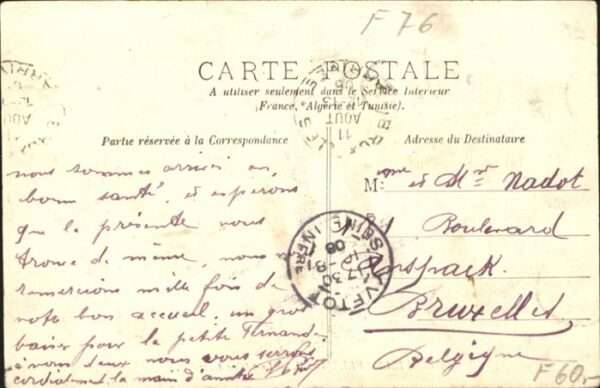 F 76
CARTE POSTALE
A utiliser seulement dans le Service Intérieur
(France, Algérie et Tunisie).
Partie réservée à la Correspondance
Adresse du Destinataire
nous sommes arrivés en
bonne santé, et esperons
que la présente vous
trouve de même, nous
remercions mille fois de
votr bon accueil, un gros
baiser pour la petite Fernand
à nous deux nous vous serrons
cordialement la main d'amitié
Mme et Mr Nadot
Boulevard
Anspach
Bruxelles
Belgique
YVETOT
SEINE INFRE
08
11
AOUT
F60,-